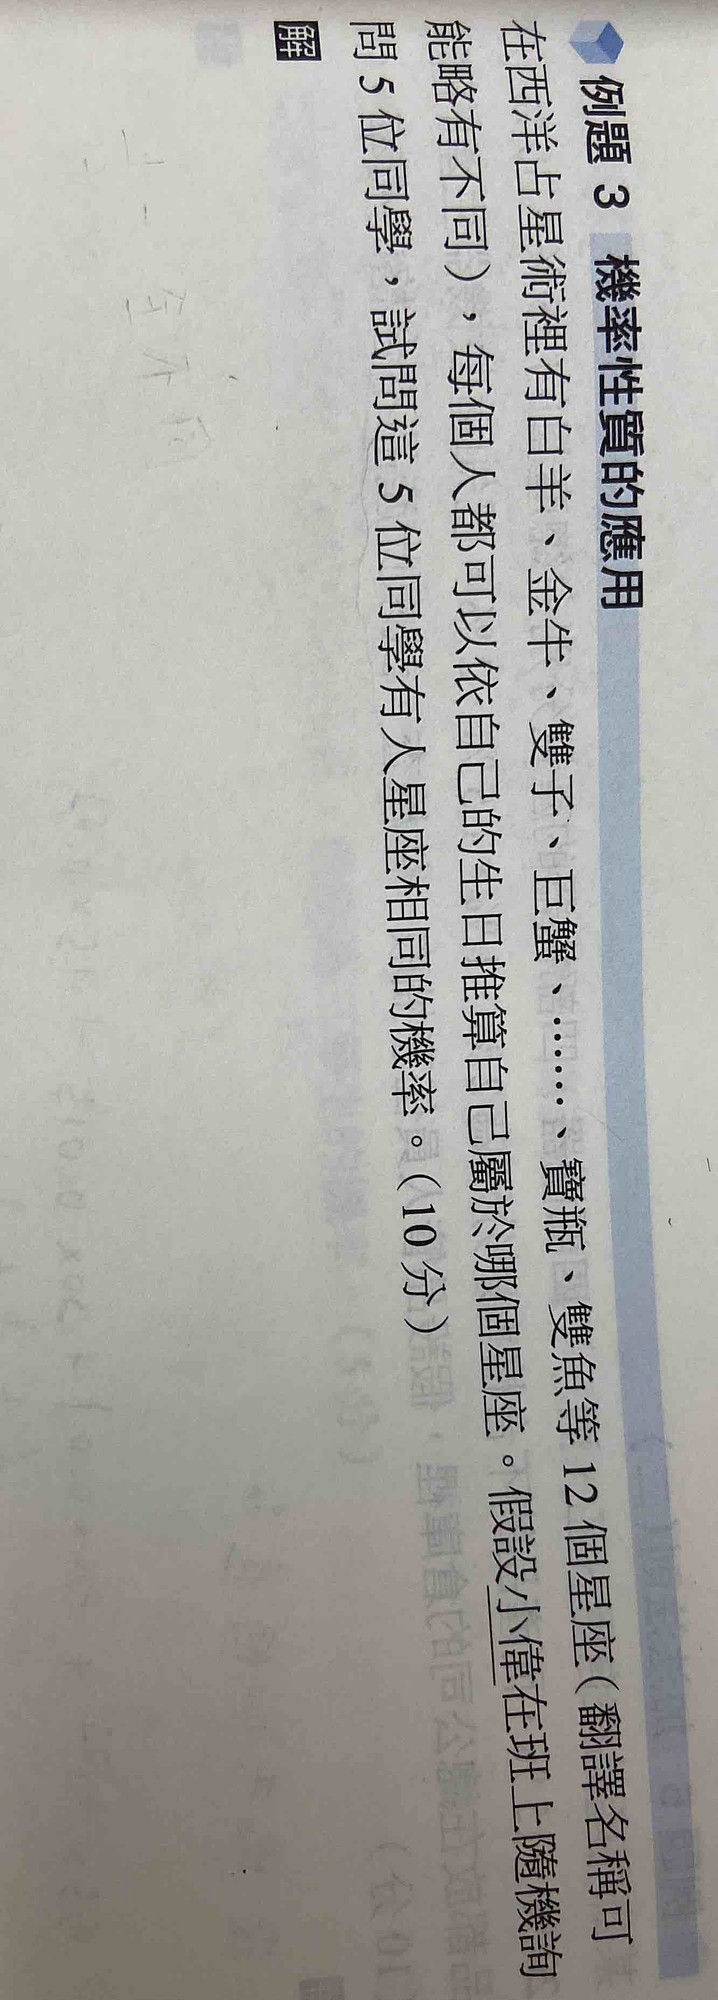 例題 3 機率性質的應用
在西洋占星術裡有白羊、金牛、雙子、巨蟹、……、寶瓶、雙魚等 12 個星座(翻譯名稱可
能略有不同),每個人都可以依自己的生日推算自己屬於哪個星座。假設小偉在班上隨機詢
問 5 位同學,試問這 5 位同學有人星座相同的機率。(10 分)
解